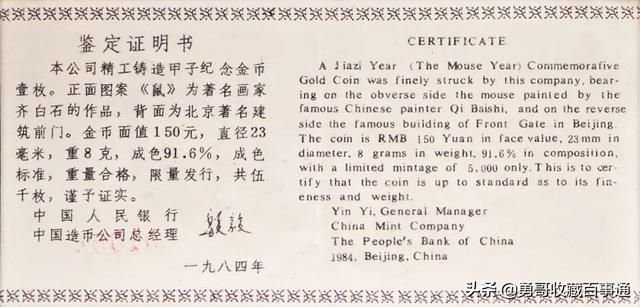 鉴定证明书
本公司精工铸造甲子纪念金币
壹枚。正面图案《鼠》为著名画家
齐白石的作品，背面为北京著名建
筑前门。金币面值150元，直径23
毫米，重8克，成色91.6%，成色
标准，重量合格，限量发行，共伍
千枚，谨予证实。
中国人民银行
中国造币公司总经理
一九八四年
CERTIFICATE
A Jiazi Year (The Mouse Year) Commemorative
Gold Coin was finely struck by this company, bear-
ing on the obverse side the mouse painted by the
famous Chinese painter Qi Baishi, and on the reverse
side the famous building of Front Gate in Beijing.
The coin is RMB 150 Yuan in face value, 23mm in
diameter, 8 grams in weight, 91.6% in composition,
with a limited mintage of 5,000 only. This is to cer-
tify that the coin is up to standard as to its fin-
eness and weight.
Yin Yi, General Manager
China Mint Company
The People's Bank of China
1984, Beijing, China
头条 @勇哥收藏百事通